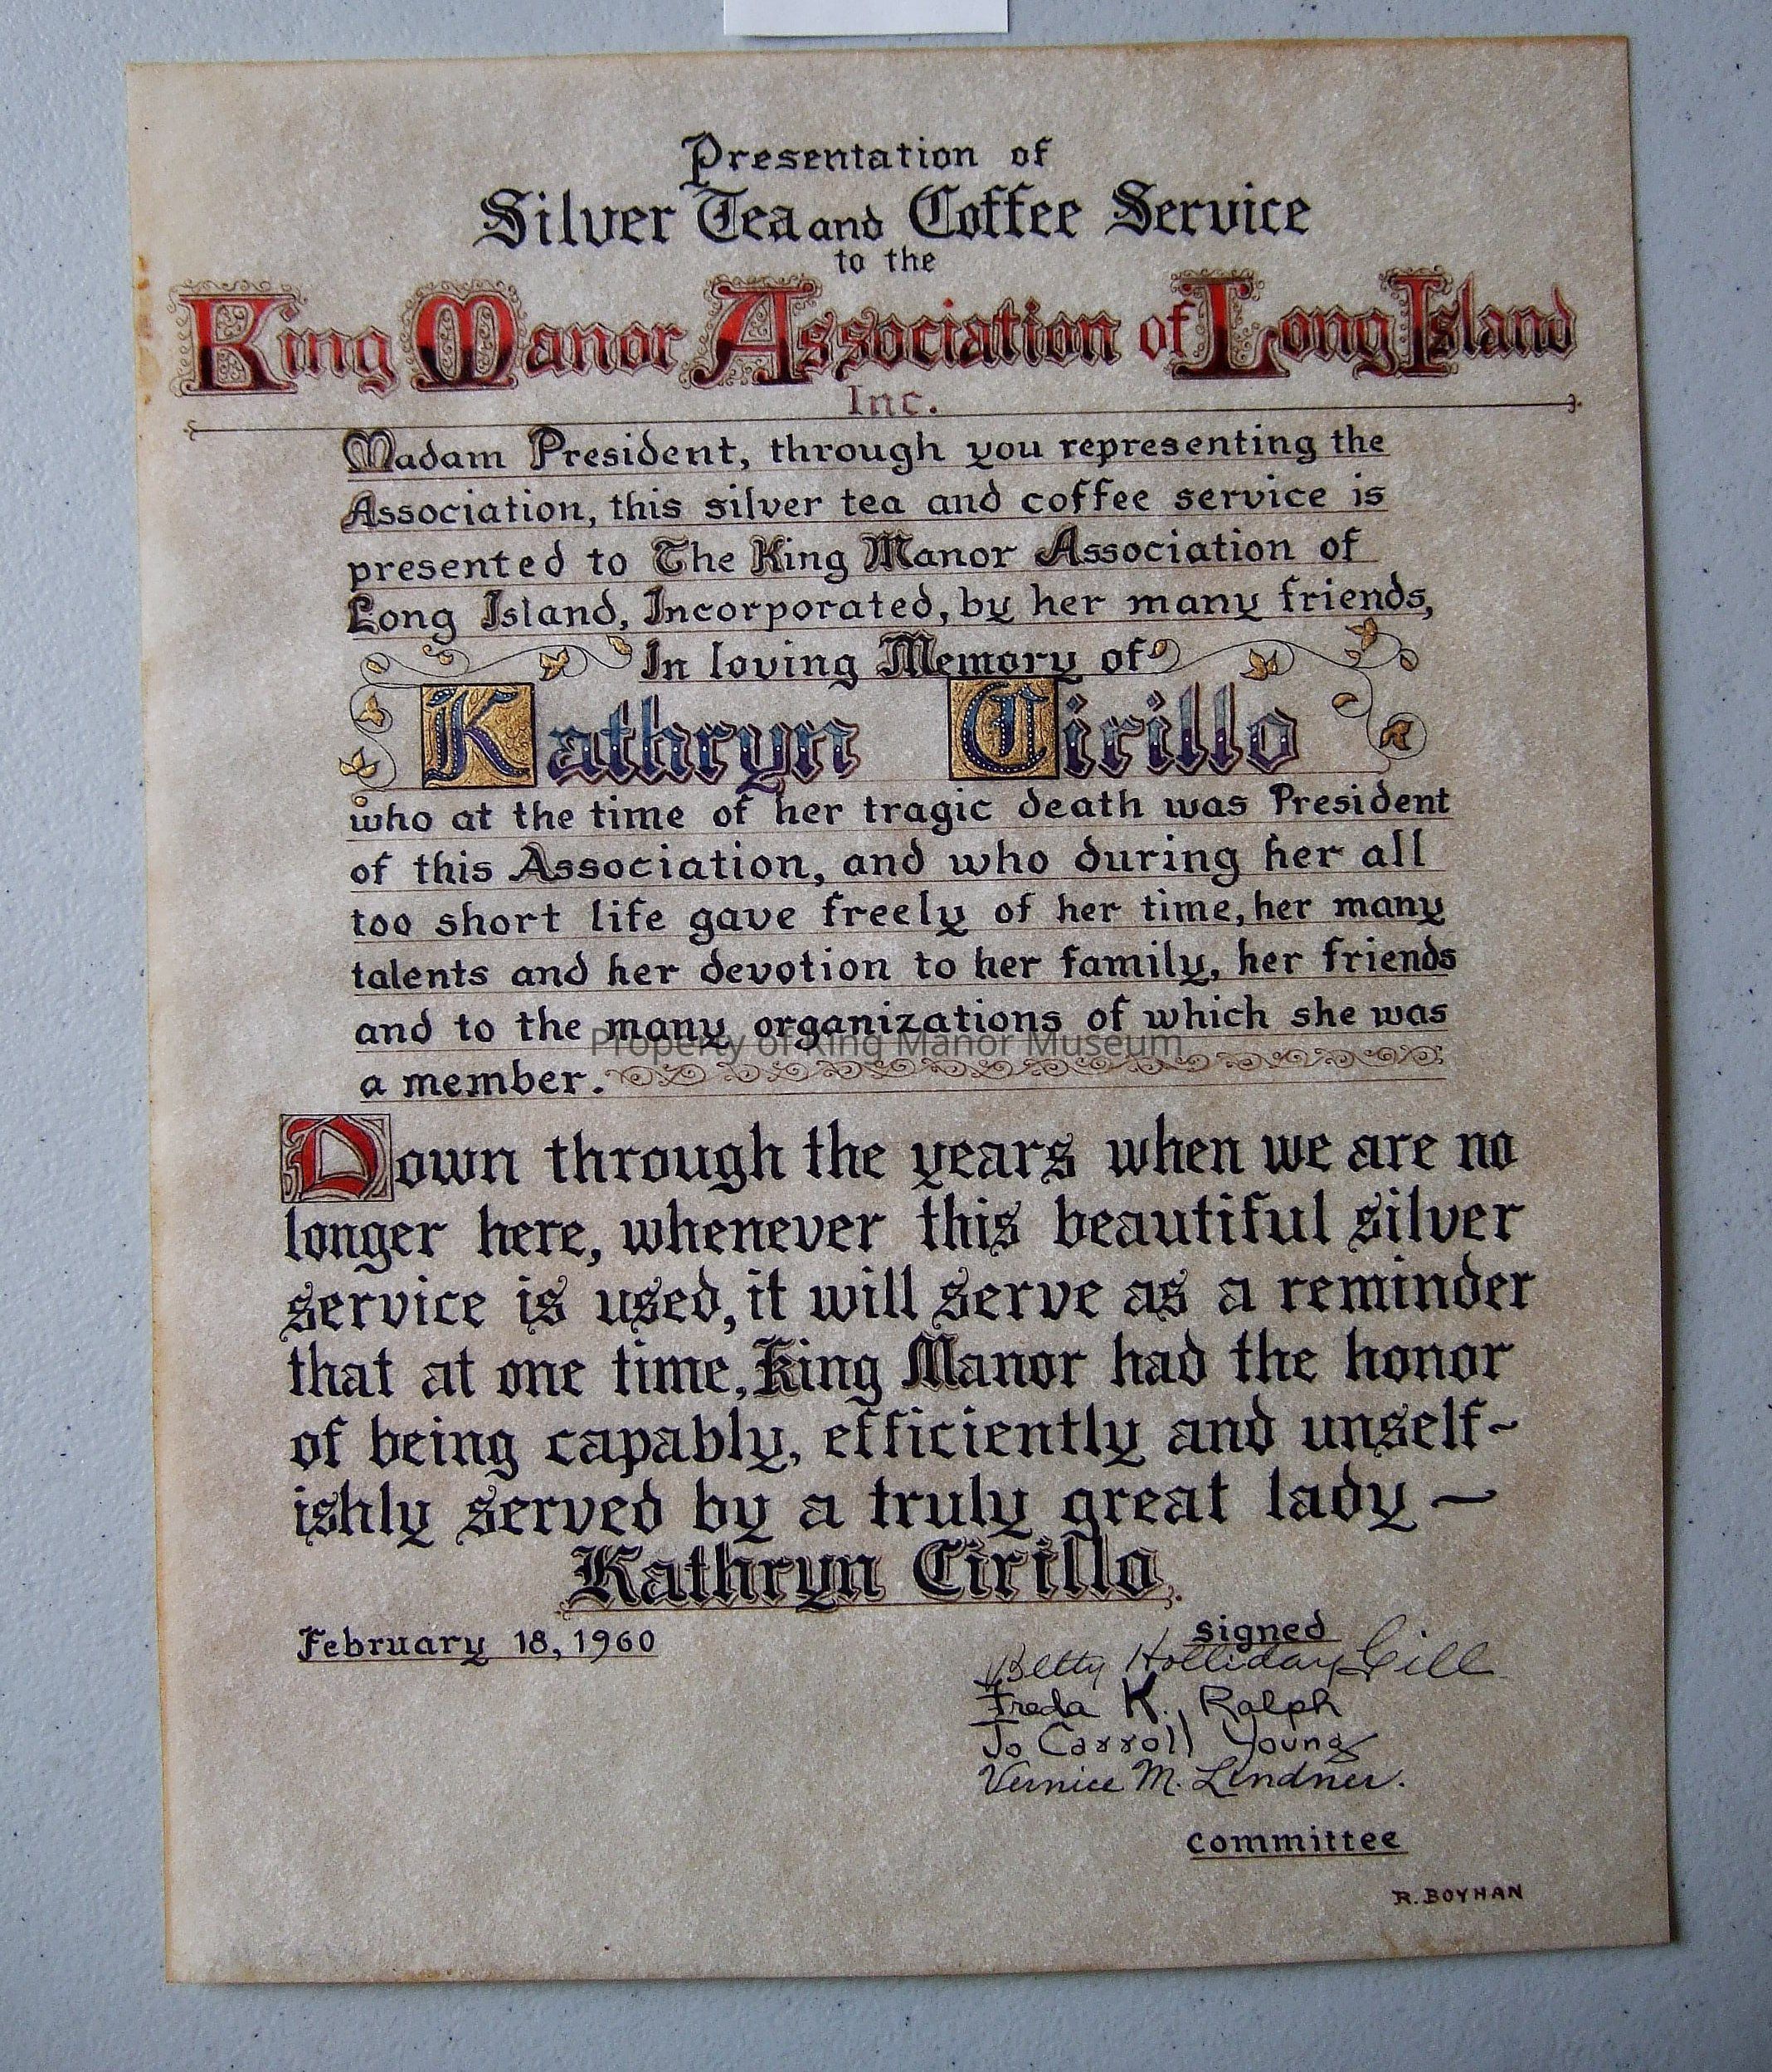 Presentation of
Silver Tea and Coffee Service
to the
King Manor Association of Long Island
Inc.
Madam President, through you representing the
Association, this silver tea and coffee service is
presented to The King Manor Association of
Long Island, Incorporated, by her many friends,
In loving Memory of
Kathryn Cirillo
who at the time of her tragic death was President
of this Association, and who during her all
too short life gave freely of her time, her many
talents and her devotion to her family, her friends
and to the many organizations of which she was
Property of King Manor Museum
a member.
Down through the years when we are no
longer here, whenever this beautiful silver
service is used, it will serve as a reminder
that at one time, King Manor had the honor
of being capably, efficiently and unself~
ishly served by a truly great lady —
Kathryn Cirillo.
February 18, 1960
signed
Betty Holliday Gill
Freda K. Ralph
Jo Carroll Young
Vernice M. Lindner.
committee
R. BOYHAN